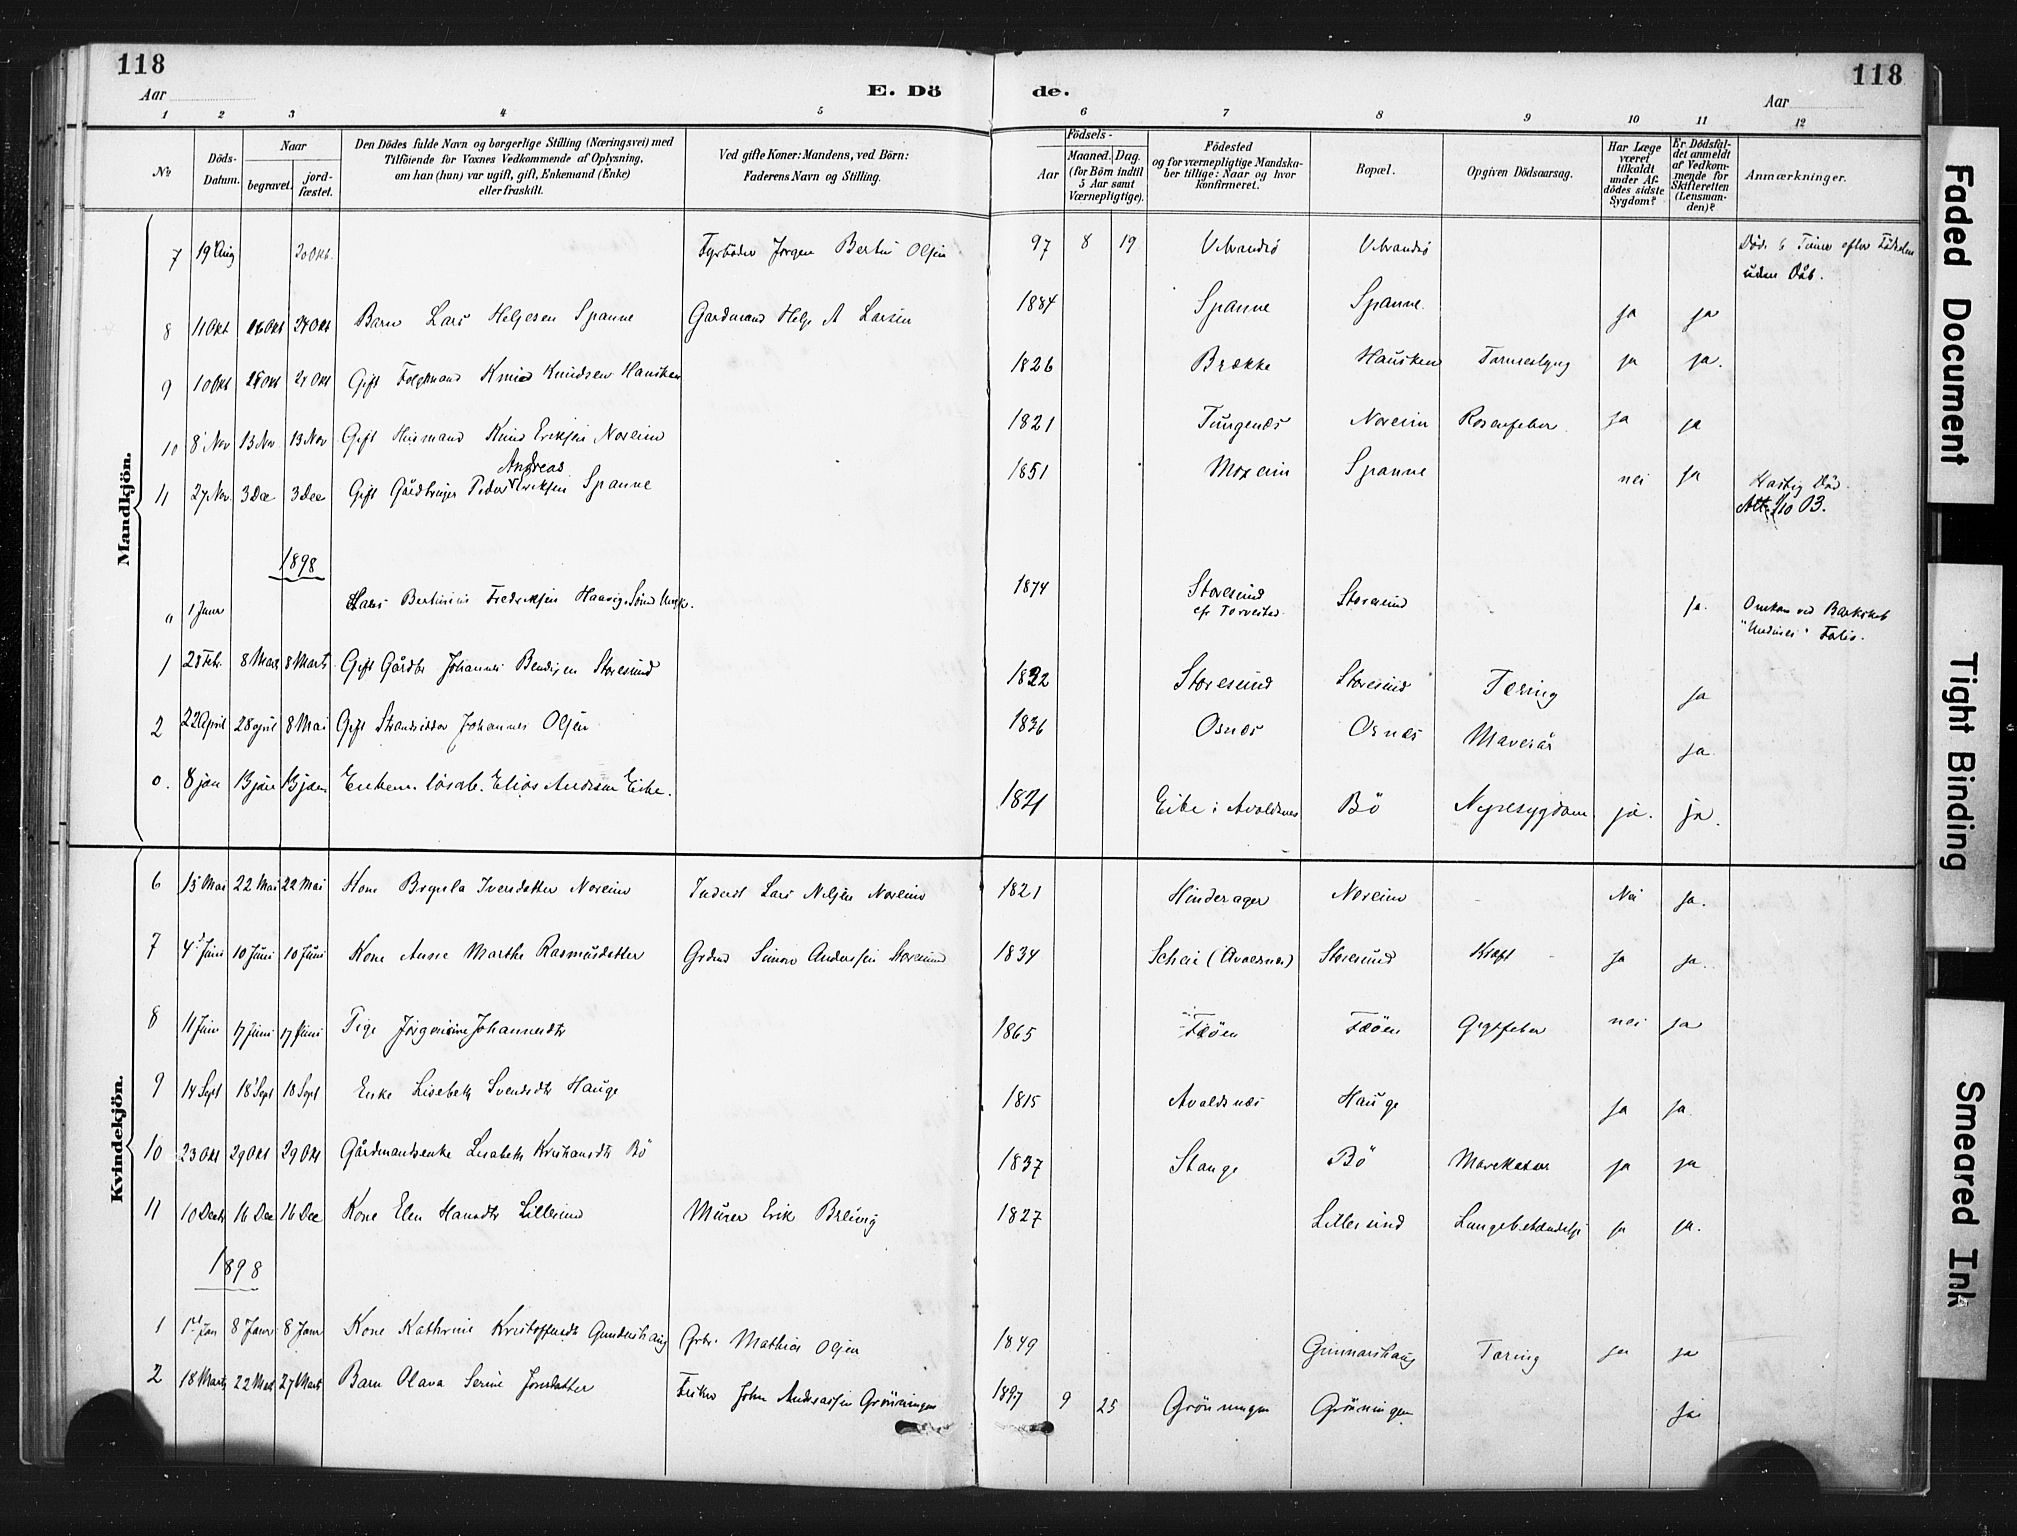 118
118
Aar
E. Dö
de.
Aar
1 2 3 4 5 6 7 8 9 10 11 12
№
Döds-Datum.
Naar
begravet.
jord-fæstet.
Den Dödes fulde Navn og borgerlige Stilling (Næringsvei) med
Tilföiende for Voxnes Vedkommende af Oplysning,
om han (hun) var ugift, gift, Enkemand (Enke)
eller fraskilt.
Ved gifte Koner: Mandens, ved Börn:
Faderens Navn og Stilling.
Födsels-
Aar
Maaned. Dag.
(for Börn indtil
5 Aar samt
Værnepligtige).
Födested
og for værnepligtige Mandska-
ber tillige: Naar og hvor
konfirmeret.
Bopæl.
Opgiven Dödsaarsag.
Har Læge
været
tilkaldt
under Af-
dödes sidste
Sygdom?
Er Dödsfal-
det anmeldt
af Vedkom-
mende for
Skifteretten
(Lensman-
den)?
Anmærkninger.
Mandkjön.
7 19 Aug 20 Okt. Fyrböder Jørgen Bertin Olsen 97 8 19 Vibrandsö Vibrandsö Död 6 Timer efter Födselen
uden Dåb.
8 11 Okt 16 Okt 24 Okt Barn Lars Helgesen Spanne Gardmand Helge A Larsen 1884 Spanne Spanne. ja ja
9 10 Okt 24 Okt Gift Folgemand Knud Knudsen Hausken 1826 Brække Hausken ja ja.
10 8 Nov 13 Nov 13 Nov Gift Husmand Knud Eriksen Noreim 1821 Tungenes Noreim Rosenfeber. ja ja
Andreas
11 27 Nov. 3 Dec 3 Dec Gift Gårdbruger Peder Eriksen Spanne 1851 Spanne nei ja Hastig Död.
1898
" 1 Janr Lars Bertinius Fredriksen Haavig 1874 Storesund Storesund ja. Omkom ved Barkskib
ef Torvestad
1 28 Feb. 8 Mars 8 Marts Gift Gårdbr Johannes Bendixen Storesund 1822 Storesund Storesund Tæring ja
2 22 April 28 april 8 Mai Gift Strandsidder Johannes Olsen 1836 Osnes Osnes Mavesår ja
0. 8 jan 13 jan 13 jan Enkem. lösarb. Elias Andersen Eike. 1821 Eike i Avaldsnes Bö Nyresygdom ja. ja.
Kvindekjön.
6 15 Mai 22 Mai 22 Mai Kone Brynla Iversdatter Noreim Inderst Lars Nilsen Noreim 1821 Hinderager Noreim Nei ja.
7 4 Juni 10 Juni 10 Juni Kone Anne Marthe Rasmusdatter Grdmd Simon Anderssen Storesund 1834 Scheie (Avaldsnes) Storesund Kræft ja ja.
8 11 Juni 17 Juni 17 Juni Pige Jørginine Johannesdtr 1865 Fæöen Fæöen Gigtfeber nei ja
9 14 Sept 18 Sept 18 Sept Enke Lisebeth Svendsdtr Hauge 1815 Avaldsnes Hauge ja ja
10 23 Okt 29 Okt 29 Okt Gårdmandsenke Lisabeth Kristiansdtr Bö 1837 Stange Bö Mavekatar ja ja
11 10 Decbr 16 Dec 16 Dec Kone Elen Hansdtr Lillesund Murer Erik Breivig 1827 Lillesund Lungebetændelse ja ja.
1898
1 1 Jan 8 Janr 8 Janr Kone Kathrine Kristoffersdtr Gundershaug Grbr. Mathias Olsen 1849 Gunnarshaug Tæring ja ja
2 18 Marts 22 Marts 27 Marts Barn Olava Serine Jonsdatter Fisker John Andreassen Grönningen 1897 9 25 Grönningen Grönningen ja
Faded Document
Tight Binding
Smeared Ink